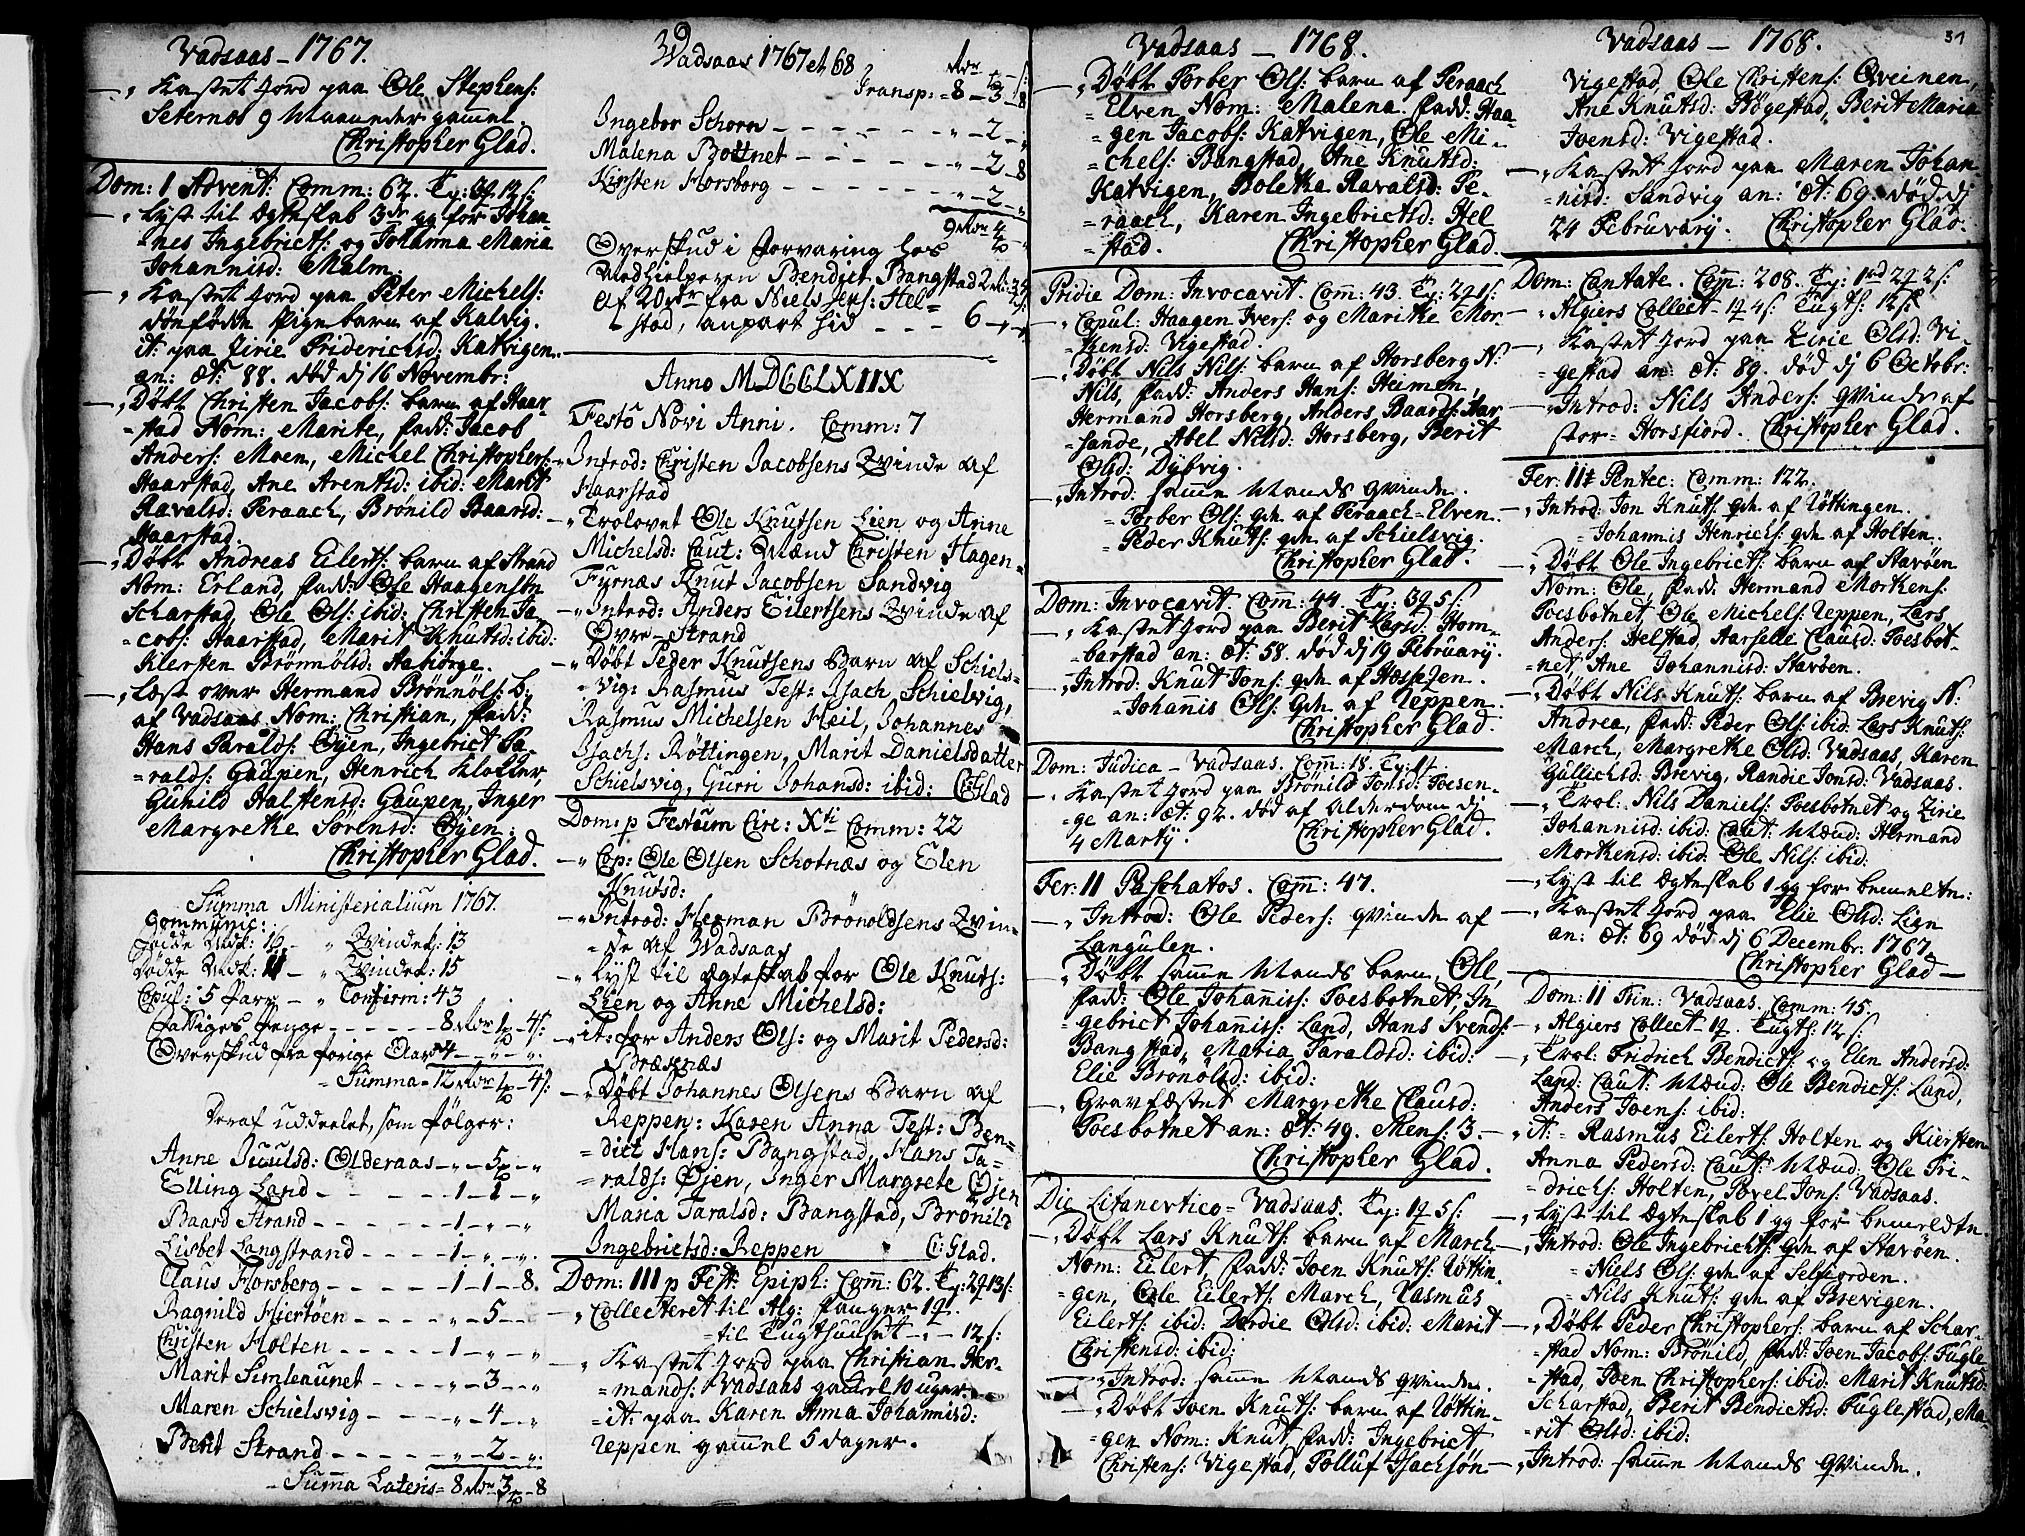 Vadsaas – 1767.
„ Kastet Jord paa Ole Stephens:
Seternes 9 Maaneder gammel.
Christopher Glad.
Dom: 1 Advent: Comm: 62.
„ Lyst til Ægteskab 3die gg for Johan-
nes Ingebricts: og Johanna Maria
Johannisd: Malm.
„ Kastet Jord paa Peter Michels:
dønfødde Pigebarn af Kalvig.
it: paa Zirie Friderichsd: Katvigen.
an: æt: 88. død dj 16 Novembr:
„ Døbt Christen Jacobs: barn af Haar-
stad Nom: Marite, fadd: Jacob
Anders: Moen, Michel Christophers:
Haarstad, Ane Arentsd: ibid: Marit
Ravalsd: Peraach, Brønild Baarsd:
Haarstad.
„ Døbt Andreas Eilerts: barn af Strand
Nom: Erland, fadd: Ole Haagensøn
Scharstad, Ole Ols: ibid: Christen Ja-
cobs: Haarstad, Marit Knutsd: ibid:
Kiersten Brønnolsd: Aabiørge.
„ Læst over Hermand Brønnols: b:
af Vadsaas Nom: Christian, fadd:
Hans Taralds: Øyen, Ingebrict Ta-
ralds: Gaupen, Henrich Klokker,
Gunild Halstensd: Gaupen, Inger
Margrethe Sørensd: Øyen.
Christopher Glad.
Summa Ministerialium 1767.
Communic:
Fødde Mdk: 16 – „ Qvindek: 13
Dødde Mdk: 11 – „ Qvindek: 15
Copul: 5 Parr – „ Confirm: 43
Fattiges Penge – – – 8
Overskud fra forige Aar 4
Summa = 12
Deraf uddeelet, som følger:
Anne Juulsd: Olderaas – „ – 5 – „
Elling Land – – 1 – 1 – „
Baard Strand – – 1 – „ – „
Lisbet Langstrand – – 1 – „ – „
Claus Horsberg – – 1 – 1 – 8.
Ragnild Hiertøen – – „ – 5 –
Christen Holten – – 1 – „ – „
Marit Simleaunet – – „ – 3 – „
Maren Schielsvig – – „ – 4 – „
Berit Strand – – „ – 2 – „
Summa Lateris = 8 – 3 – 8
Wadsaas 1767 et 68
Transp: = 8 – 3 – 8
Ingebor Schorn – – „ – 2 – „
Malena Bottnet – – „ – 2 – 8
Kirsten Horsborg – – „ – 2 – „
Overskud i forvaring hos
Medhielperen Bendict Bangstad
Af 20 fra Niels Jens: Hel-
stad, anpart hid – – 6 – „ – „
Anno MDCCLXIIX
Festo Novi Anni. Comm: 7
„ Introd: Christen Jacobsens Qvinde af
Haarstad
„ Trolovet Ole Knutsen Lien og Anne
Michelsd: Caut: Mænd Christen Hagen-
Fyrnæs Knut Jacobsen Sandvig
„ Introd: Anders Eilertsens Qvinde af
Over-Strand
„ Døbt Peder Knutsens Barn af Schiels-
vig: Rasmus Test: Isach Schielvig,
Rasmus Michelsen Heil, Johannes
Isachs: Røttingen, Marit Danielsdatter
Schielsvig, Gurri Johansd: ibid: C: Glad
Dom: p Festum Circ: Xti Comm: 22
„ Cop: Ole Olsen Schotnæs og Elen
Knutsd:
„ Introd: Herman Brønoldsens Qvin-
de af Wadsaas
„ Lyst til Ægteskab for Ole Knuts:
Lien og Anne Michelsd:
„ it: for Anders Ols: og Marit Pedersd:
Bræsnæs
„ Døbt Johannes Olsens Barn af
Reppen: Karen Anna Test: Ben-
dict Hans: Bangstad, Hans Ta-
ralds: Øjen, Inger Margrete Øjen
Maria Taralsd: Bangstad, Brønild
Ingebrictsd: Reppen C: Glad.
Dom: III p Fest: Epiph: Comm: 62.
„ Collecteret til Alg: fanger
til Tugthuuset – „ – 12 s:
„ Kastet Jord paa Christian Her-
mands: Vadsaas gamel 10 uger
it: paa Karen Anna Johannisd:
Reppen gammel 5 dager.
Vadsaas – 1768.
„ Døbt Torber Ols: barn af Peraach
Elven Nom: Malena fadd: Haa-
gen Jacobs: Katvigen, Ole Mi-
chels: Bangstad, Ane Knutsd:
Katvigen, Boletha Ravalsd: Pe-
raach, Karen Ingebrictsd: Hel
stad. Christopher Glad.
Pridie Dom: Invocavit. Comm: 43.
„ Copul: Haagen Ivers: og Marithe Mor-
tensd: Vigestad.
„ Døbt Nils Nils: barn af Horsberg N:
Nils, fadd: Anders Hans: Humen,
Hermand Horsberg, Anders Baards: Har
sande, Abel Nilsd: Horsberg, Berit
Olsd: Dybvig.
„ Introd: samme Mands qvinde.
Torber Ols: qvd. af Peraach-Elven.
Peder Knuts: qvd. af Schielsvig.
Christopher Glad.
Dom: Invocavit. Comm: 44.
„ Kastet Jord paa Berit Larsd: Hom-
barstad an: æt: 58. død dj 19 February.
„ Introd: Knut Jons: qvd. af Hosetzen.
Johanis Ols: qvd. af Reppen.
Christopher Glad.
Dom: Judica – Vadsaas. Comm: 18.
„ Kastet Jord paa Brønild Jonsd: Foesen-
ge an: æt: 92. død af Alderdom dj
4 Marty. Christopher Glad.
Fer: II Paschatos. Comm: 47.
„ Introd: Ole Peders: qvinde af
Langulen.
„ Døbt samme Mands barn, Ole,
fadd: Ole Johannis: Foesbotnet, In
gebrict Johannis: Land, Hans Svends:
Bangstad, Maria Taraldsd: ibid:
Elie Brønolsd: ibid:
„ Gravfæstet Margrethe Clausd:
Foesbotnet an: æt: 49. Mens: 3.
Christopher Glad.
Die Litanevtico = Vadsaas.
„ Døbt Lars Knuts: barn af March
Nom: Eilert, fadd: Joen Knuts: Røttin-
gen, Ole Eilerts: March, Rasmus
Eilerts: ibid: Dordie Olsd: ibid: Marit
Christensd: ibid:
„ Introd: samme Mands qvinde.
„ Døbt Joen Knuts: barn af Røttin-
gen Nom: Knut, fadd: Ingebrict
Christens: Vigestad, Tolluf Isachsøn
Vadsaas – 1768.
31
Vigestad, Ole Christens: Qveinen,
Ane Knutsd: Bøgestad, Berit Maria
Joensd: Vigestad.
„ Kastet Jord paa Maren Johan-
nisd: Sandvig an: æt: 69. død dj
24 Februvary. Christopher Glad.
Dom: Cantate. Comm: 208.
„ Algiers Collect
„ Kastet Jord paa Zirie Olsd: Vi-
gestad an: æt: 89. død dj 6 Octobr:
„ Introd: Nils Anders: qvinde af
stor-Horsfiord. Christopher Glad.
Fer: II Pentec: Comm: 122.
„ Introd: Jon Knuts: qvd. af Røttingen.
Johannis Henrichs: qvd. af Holten.
„ Døbt Ole Ingebricts: barn af Starøen
Nom: Ole, fadd: Hermand Mortens:
Foesbotnet, Ole Michels: Reppen, Lars
Anders: Helstad, Aarselle Clausd: Foesbot-
net Ane Johannisd: Starøen.
„ Døbt Nils Knuts: barn af Brevig N:
Andrea, fadd: Peder Ols: ibid: Lars Knuts:
March, Margrethe Olsd: Vadsaas, Karen
Gullichsd: Brevig, Randie Jonsd: Vadsaas.
„ Trol: Nils Daniels: Foesbotnet og Zirie
Johannisd: ibid: Caut: Mænd: Hermand
Mortensd: ibid: Ole Nils: ibid:
„ Lyst til Ægteskab 1 gg for bemeltn:
„ Kastet Jord paa Elie Olsd: Lien
an: æt: 69 død dj 6 Decembr: 1767
Christopher Glad –
Dom: II Trin: Vadsaas. Comm: 45.
„ Algiers Collect
„ Trol: Fridrich Bendicts: og Elen Andersd:
Land: Caut: Mænd: Ole Bendicts: Land,
Anders Joens: ibid:
„ it: Rasmus Eilerts: Holten og Kiersten
Anna Pedersd: Caut: Mænd: Ole Fri-
drichs: Holten, Povel Jons: Vadsaas.
„ Lyst til Ægteskab 1 gg for bemeldtn.
„ Introd: Ole Ingebrichts: qvd. af Starøen
Niels Ols: qvd. af Selfiorden.
Nils Knuts: qvd. af Brevigen.
„ Døbt Peder Christophers: barn af Schar-
stad Nom: Brønild, fadd: Joen Jacobs: Fugle
stad, Joen Christophers: ibid: Marit Knutsd:
Scharstad, Berit Bendictsd: Fuglestad, Ma-
rit Olsd: ibid:
„ Introd: samme Mands qvinde.